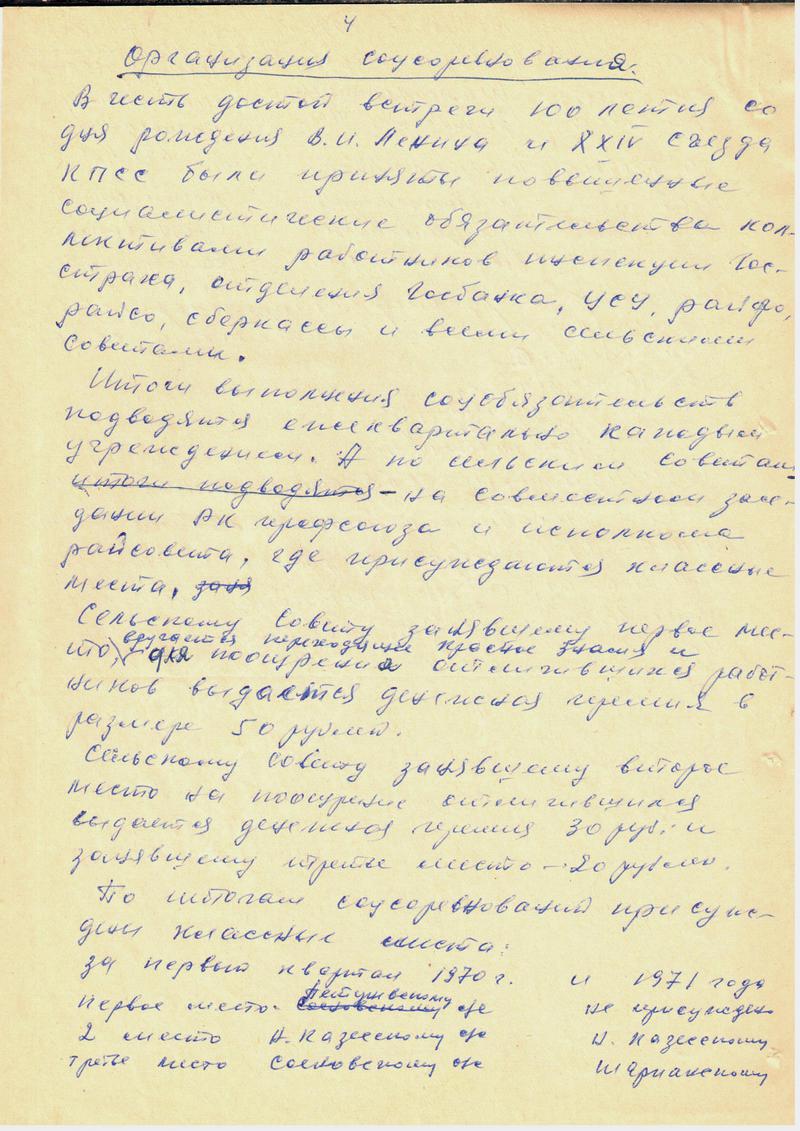 4
Организация соцсоревнования.
В честь достой встречи 100 летия со
дня рождения В.И. Ленина и XXIV съезда
КПСС были приняты повышенные
социалистические обязательства кол-
лективами работников инспекции Гос-
страха, отделения Госбанка, ЦСУ, райфо,
райсо, сберкассы и всеми сельскими
советами.
Итоги выполнения соцобязательств
подводятся ежеквартально каждым
учреждением. А по сельским советам
итоги подводятся - на совместном засе-
дании РК профсоюза и исполкома
райсовета, где присуждаются классные
места, заня
Сельскому совету занявшему первое мес-
вручается переходящее Красное Знамя и
то, для поощрения отличившихся работ-
ников выдается денежная премия в
размере 50 рублей.
Сельскому совету занявшему второе
место на поощрение отличившихся
выдается денежная премия 30 руб. и
занявшему третье место - 20 рублей.
По итогам соцсоревнований присуж-
дены классные места:
за первый квартал 1970 г. и 1971 года
Петуневскому
первое место - Сосновскому с/с не присуждено
2 место Н. Казесскому с/с Н. Казесскому
третье место Сосновскому с/с